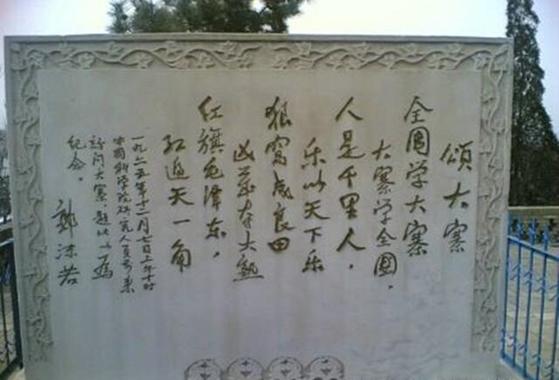 颂大寨
全国学大寨
大寨学全国,
人是千里人,
乐以天下乐
狼窝成良田
凶岁夺大熟
红旗毛泽东,
红遍天一角
一九六五年十二月七日上午十时
中国科学院研究人员来
访问大寨题此以为
纪念。
郭沫若